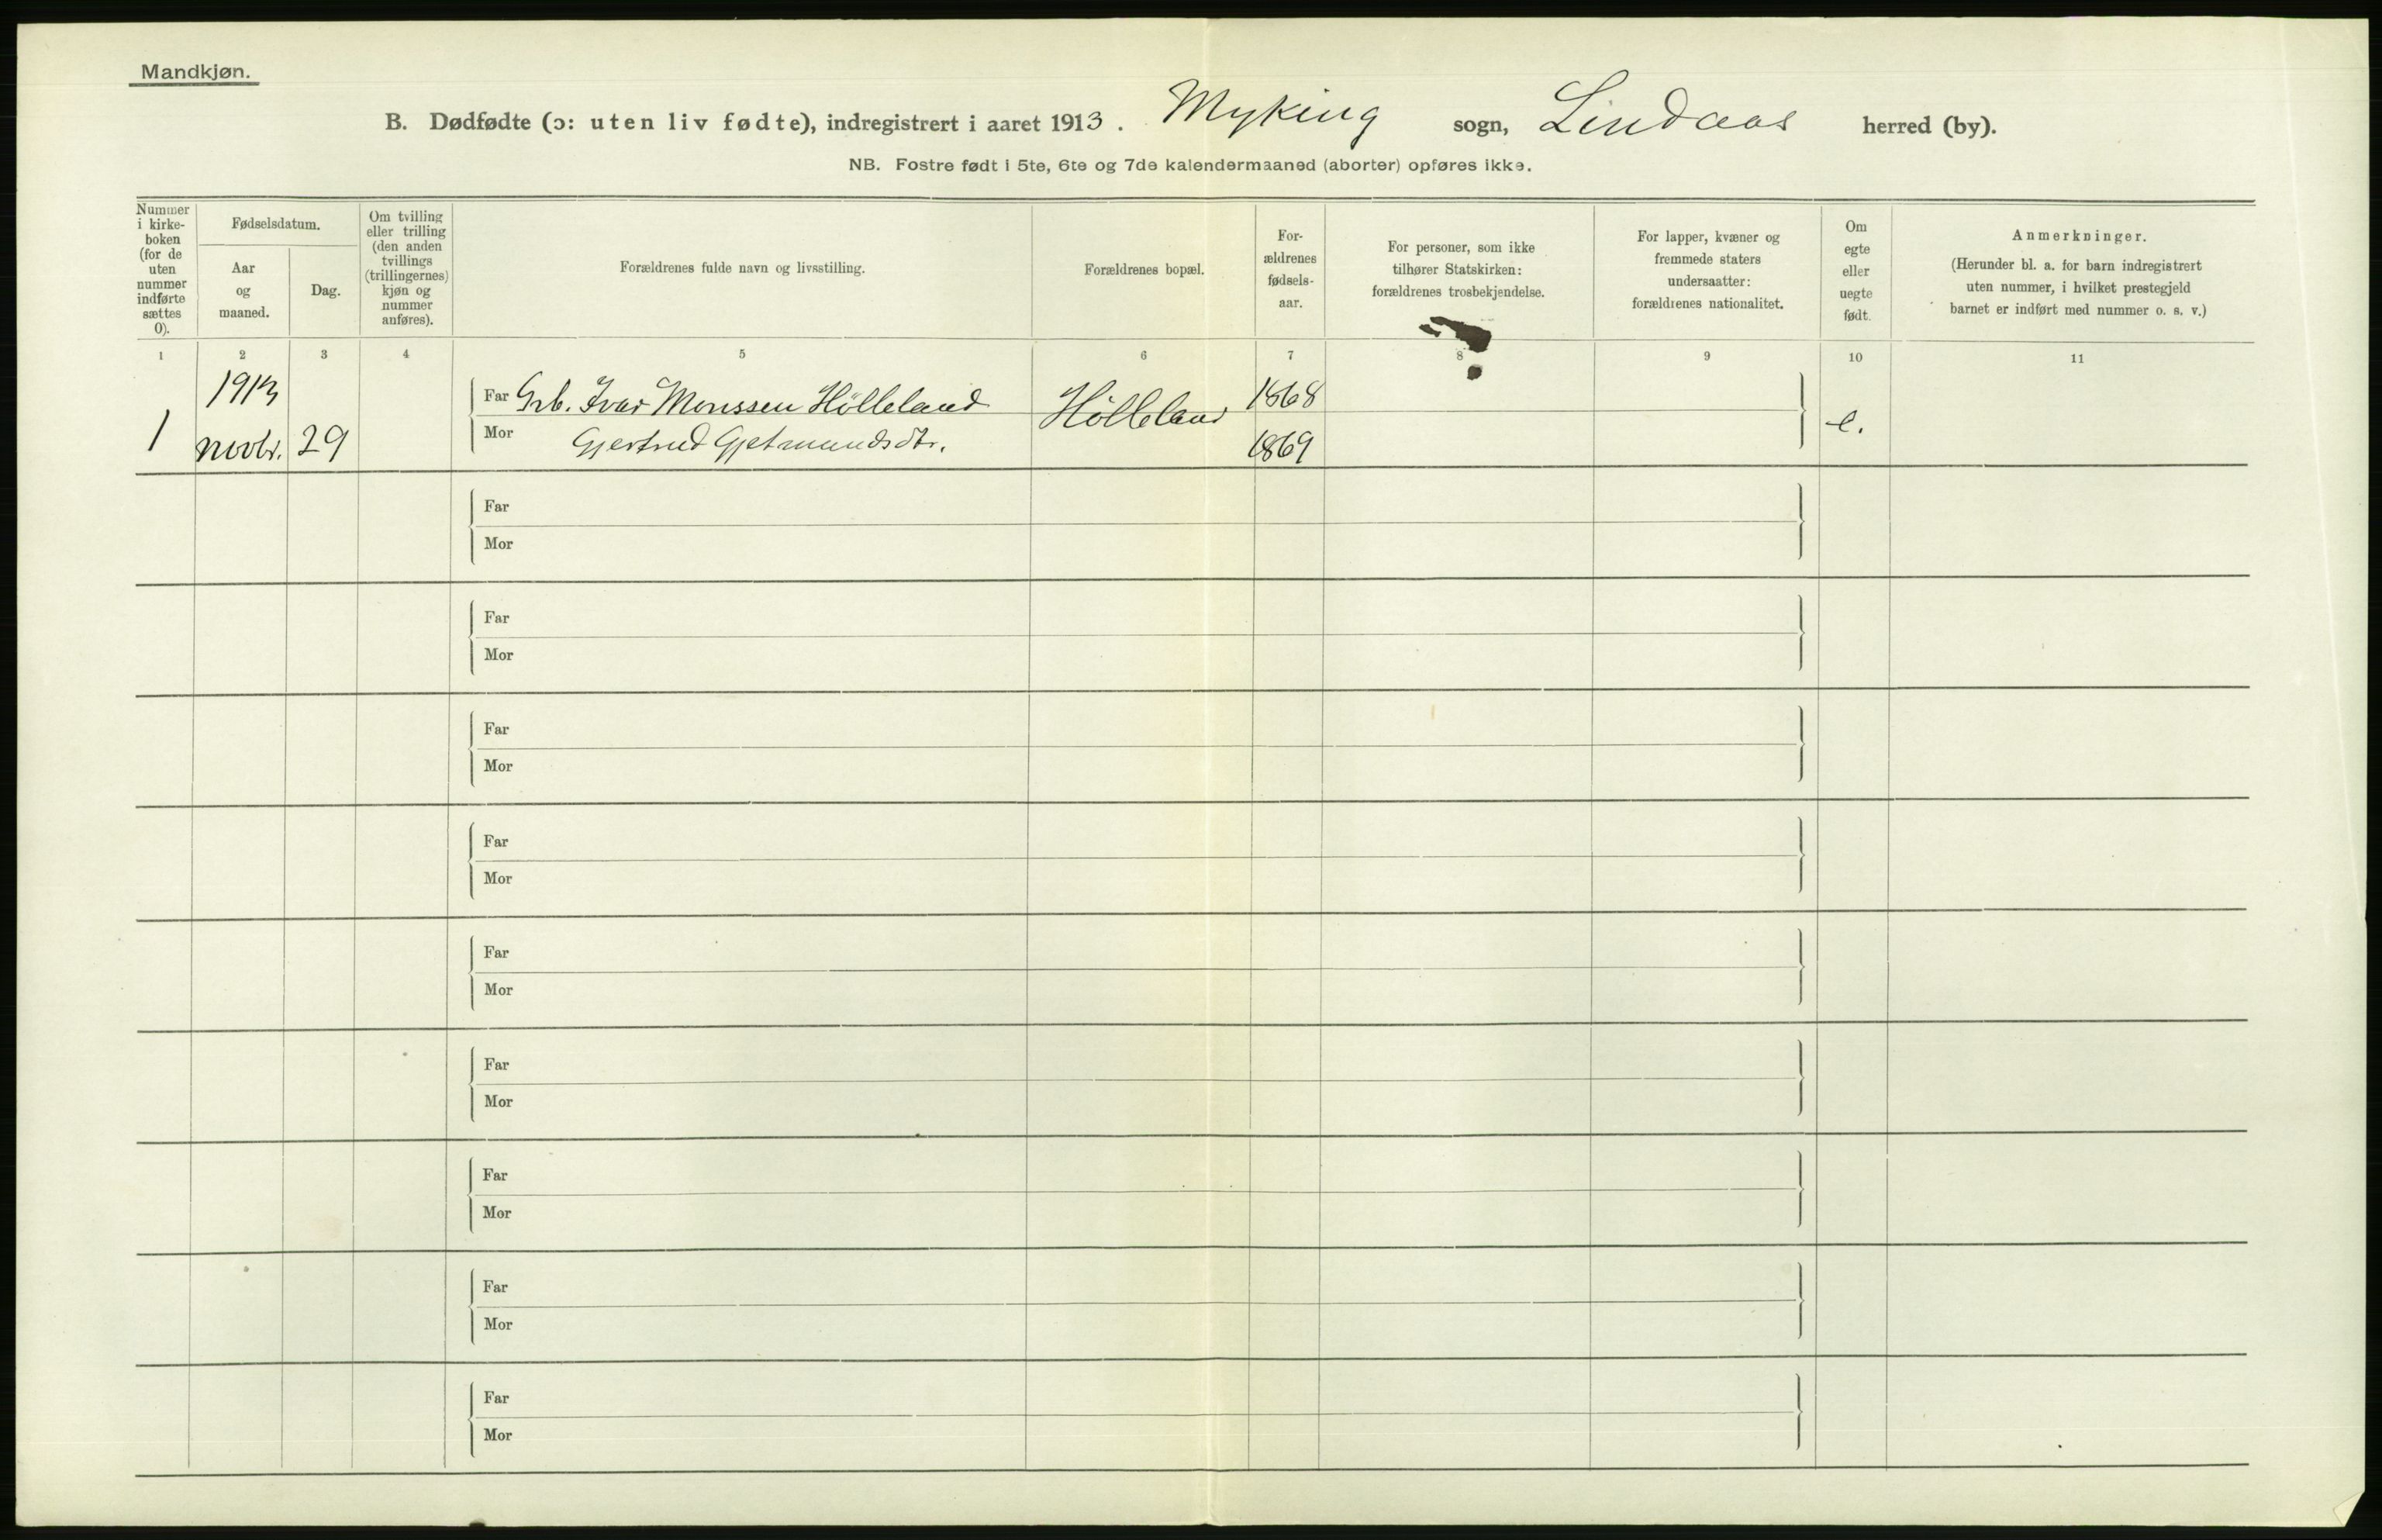 Mandkjøn.
B. Dødfødte (ɔ: uten liv fødte), indregistrert i aaret 1913. Myking sogn, Lindaas herred (by).
NB. Fostre født i 5te, 6te og 7de kalendermaaned (aborter) opføres ikke.
Nummer
i kirke-
boken
(for de
uten
nummer
indførte
sættes
0).
Fødselsdatum.
Aar
og
maaned.
Dag.
Om tvilling
eller trilling
(den anden
tvillings
(trillingernes)
kjøn og
nummer
anføres).
Forældrenes fulde navn og livsstilling.
Forældrenes bopæl.
For-
ældrenes
fødsels-
aar.
For personer, som ikke
tilhører Statskirken:
forældrenes trosbekjendelse.
For lapper, kvæner og
fremmede staters
undersaatter:
forældrenes nationalitet.
Om
egte
eller
uegte
født.
Anmerkninger.
(Herunder bl. a. for barn indregistrert
uten nummer, i hvilket prestegjeld
barnet er indført med nummer o. s. v.)
1 2 3 4 5 6 7 8 9 10 11
1913 Far Grb. Ivar Monssen Hölleland Hölleland 1868
1 novbr. 29 Mor Gjertrud Gjetmundsdtr. 1869 e.
Far
Mor
Far
Mor
Far
Mor
Far
Mor
Far
Mor
Far
Mor
Far
Mor
Far
Mor
Far
Mor